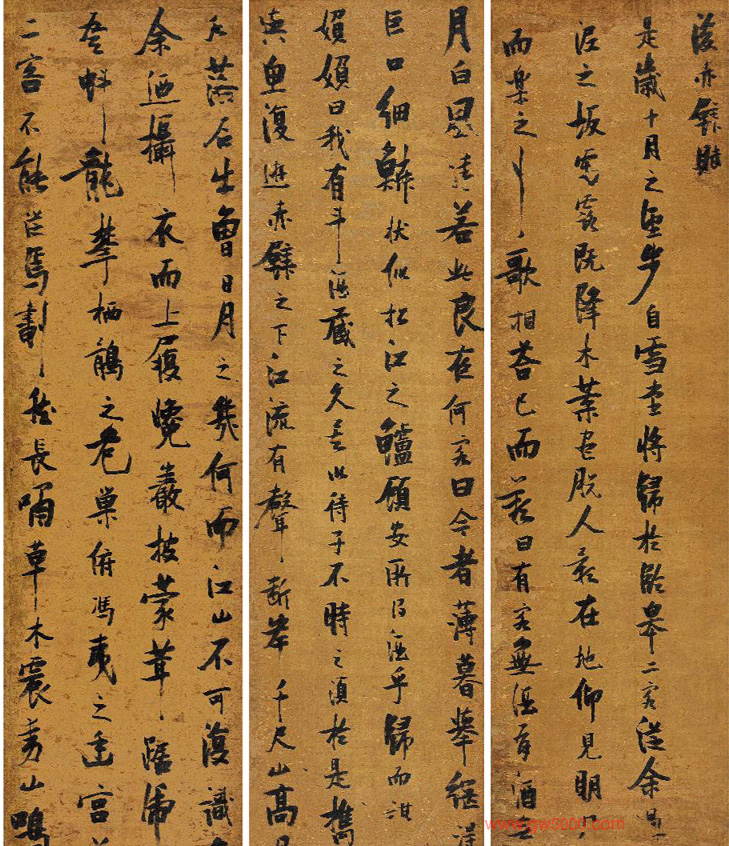 後赤壁賦
是歲十月之望步自雪堂將歸於臨皋二客從余過
泥之坂霜露既降木葉盡脫人影在地仰見明
而樂之行歌相荅已而歎曰有客無酒有酒
月白風清若此良夜何客曰今者薄暮舉網得
巨口細鱗狀似松江之鱸顧安所得酒乎歸而謀
婦婦曰我有斗酒藏之久矣以待子不時之須於是攜
與魚復遊赤壁之下江流有聲斷岸千尺山高月
水落石出曾日月之幾何而江山不可復識
余迺攝衣而上履巉巖披蒙茸踞虎
登虯龍攀栖鶻之危巢俯馮夷之幽宮
二客不能從焉劃然長嘯草木震動山鳴
www.gw3000.com